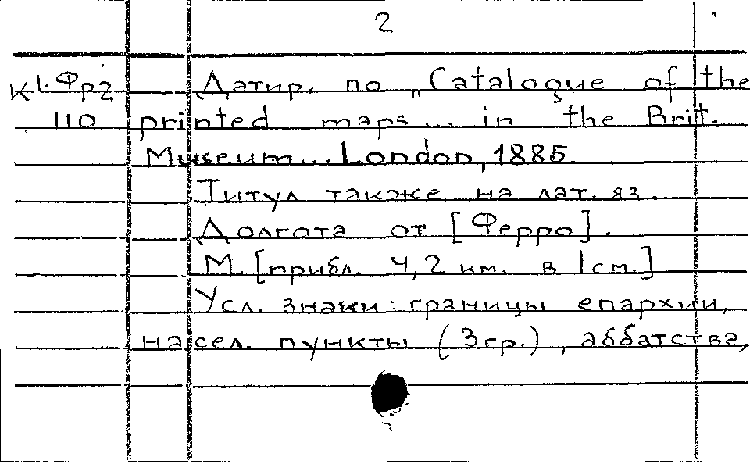 2
К1.Фр2 Датир. по „Catalogue of the
110 printed maps... in the Brit.
Museum... London, 1885
Титул также на лат. яз.
Долгота от [Ферро].
М. [прибл. 4,2 км. в 1см.]
Усл. знаки: границы епархии,
насел. пункты (3гр.), аббатства,